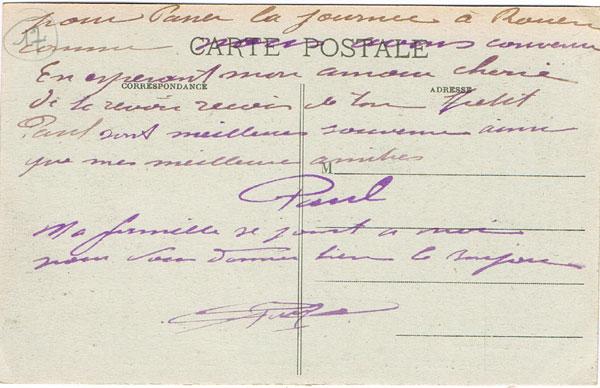 17
pour Passer la journée à Rouen
comme nous avons convenu
CARTE POSTALE
En esperant mon amour cherie
CORRESPONDANCE
ADRESSE
de te revoir recois de ton Petit
Paul sont meilleur souvenir ainsi
que mes meilleure amities
M
Paul
Ma famille se joint a moi
pour vous donner bien le bonjour